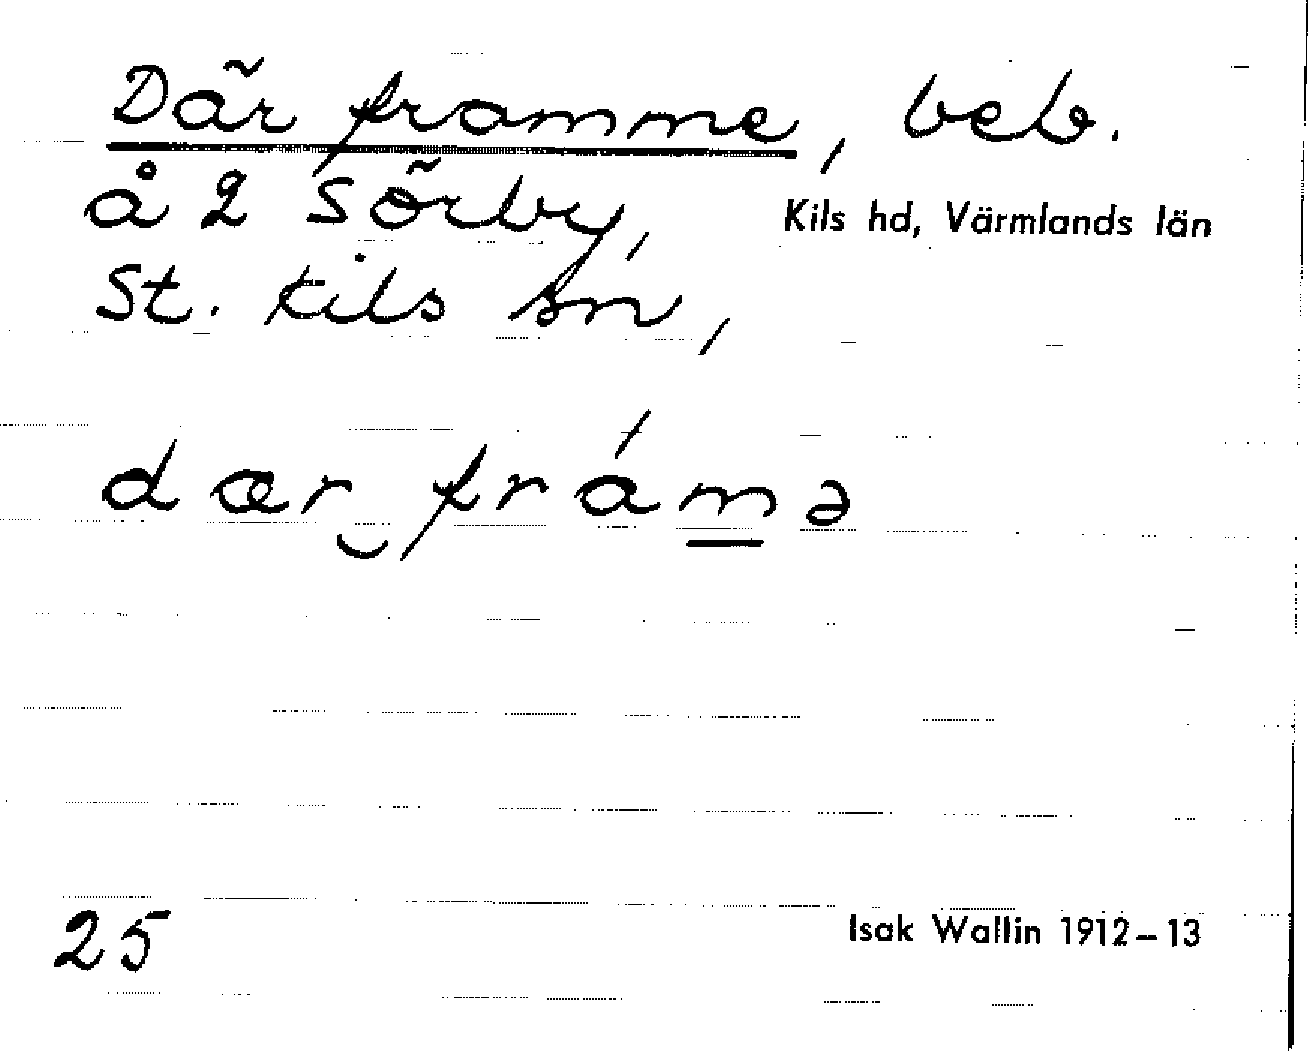 Där framme, beb.
å 2 Sörby,
Kils hd, Värmlands län
St. Kils sn,
dær‿frám̲ə
25
Isak Wallin 1912–13